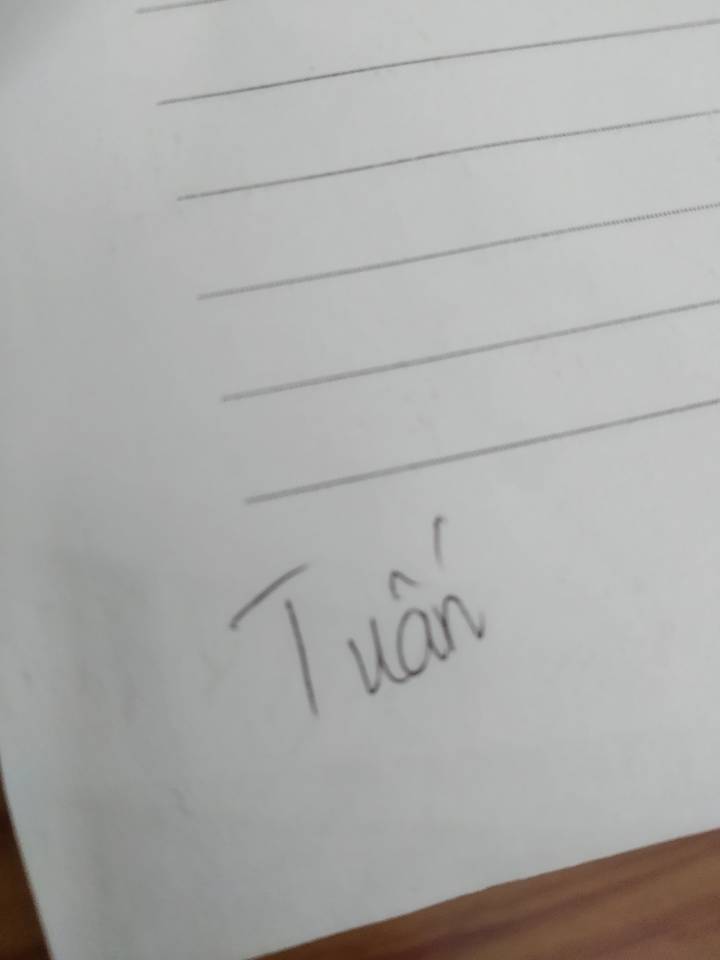 Tuấn